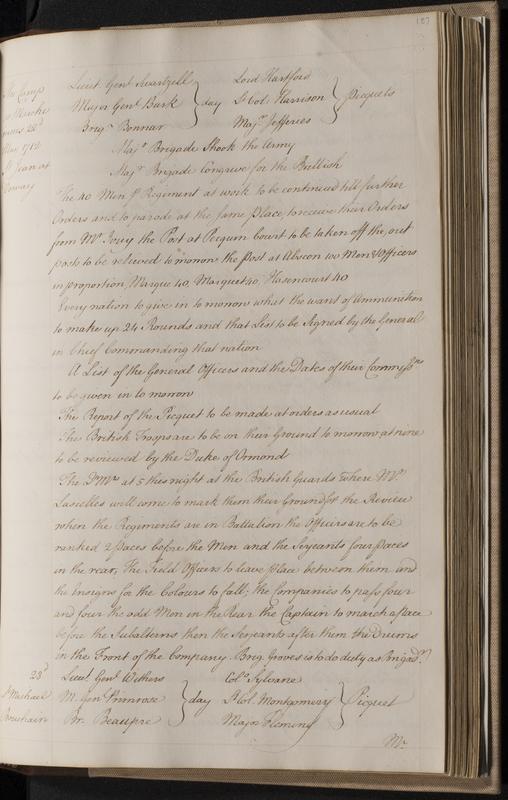 187
The Camp
22d
May 1712
St Jean at
Lieut. Genl Swartzell
Major Genl Burk
Brigr Bonnar
day
Lord Hartford
Lt Col. Harrison
Majr. Jefferies
Picquets
Majr Brigade Shook the Army
Majr Brigade Congreve for the British
The 40 Men pr Regiment at work to be continued till further
Orders and to parade at the same place, to receive their Orders
from Mr Jouy the Post at Pequin Court to be taken off the, out
posts to be releived to morrow the Post at Abscon 100 Men & Officers
in proportion, Marque 40, Marquet 40, Hasencourt 40
Every nation to give in to morrow what the want of Ammunition
to make up 24 Rounds and that List to be Signed by the General
in Chief Commanding that nation
A List of the General Officers and the Dates of their Commissns
to be given in to morrow
The Report of the Picquet to be made at orders as usual
The British Troops are to be on their Ground to morrow at nine
to be reviewed by the Duke of Ormond
The Qr Mrs at 5 this night at the British Guards where Mr.
Lascelles will come to mark them their Ground for the Review
when the Regiments are in Battalion the Officers are to be
ranked 2 paces before the Men and the Serjeants four paces
in the rear, The Field Officers to leave place between them and
the Ensigns for the Colours to fall; the Companies to pass four
and four the odd Men in the Rear the Captain to march a pace
before the Subalterns then the Serjeants after them the Drums
in the Front of the Company. Brig. Groves is to do duty as Brigadr.
23d
St Michael
Bouchain
Lieut. Genl Withers
M. Genl Primrose
Br. Beaupre
day
Colo Sybourg
Lt Col. Montgomery
Major Fleming
Picquet
Mr